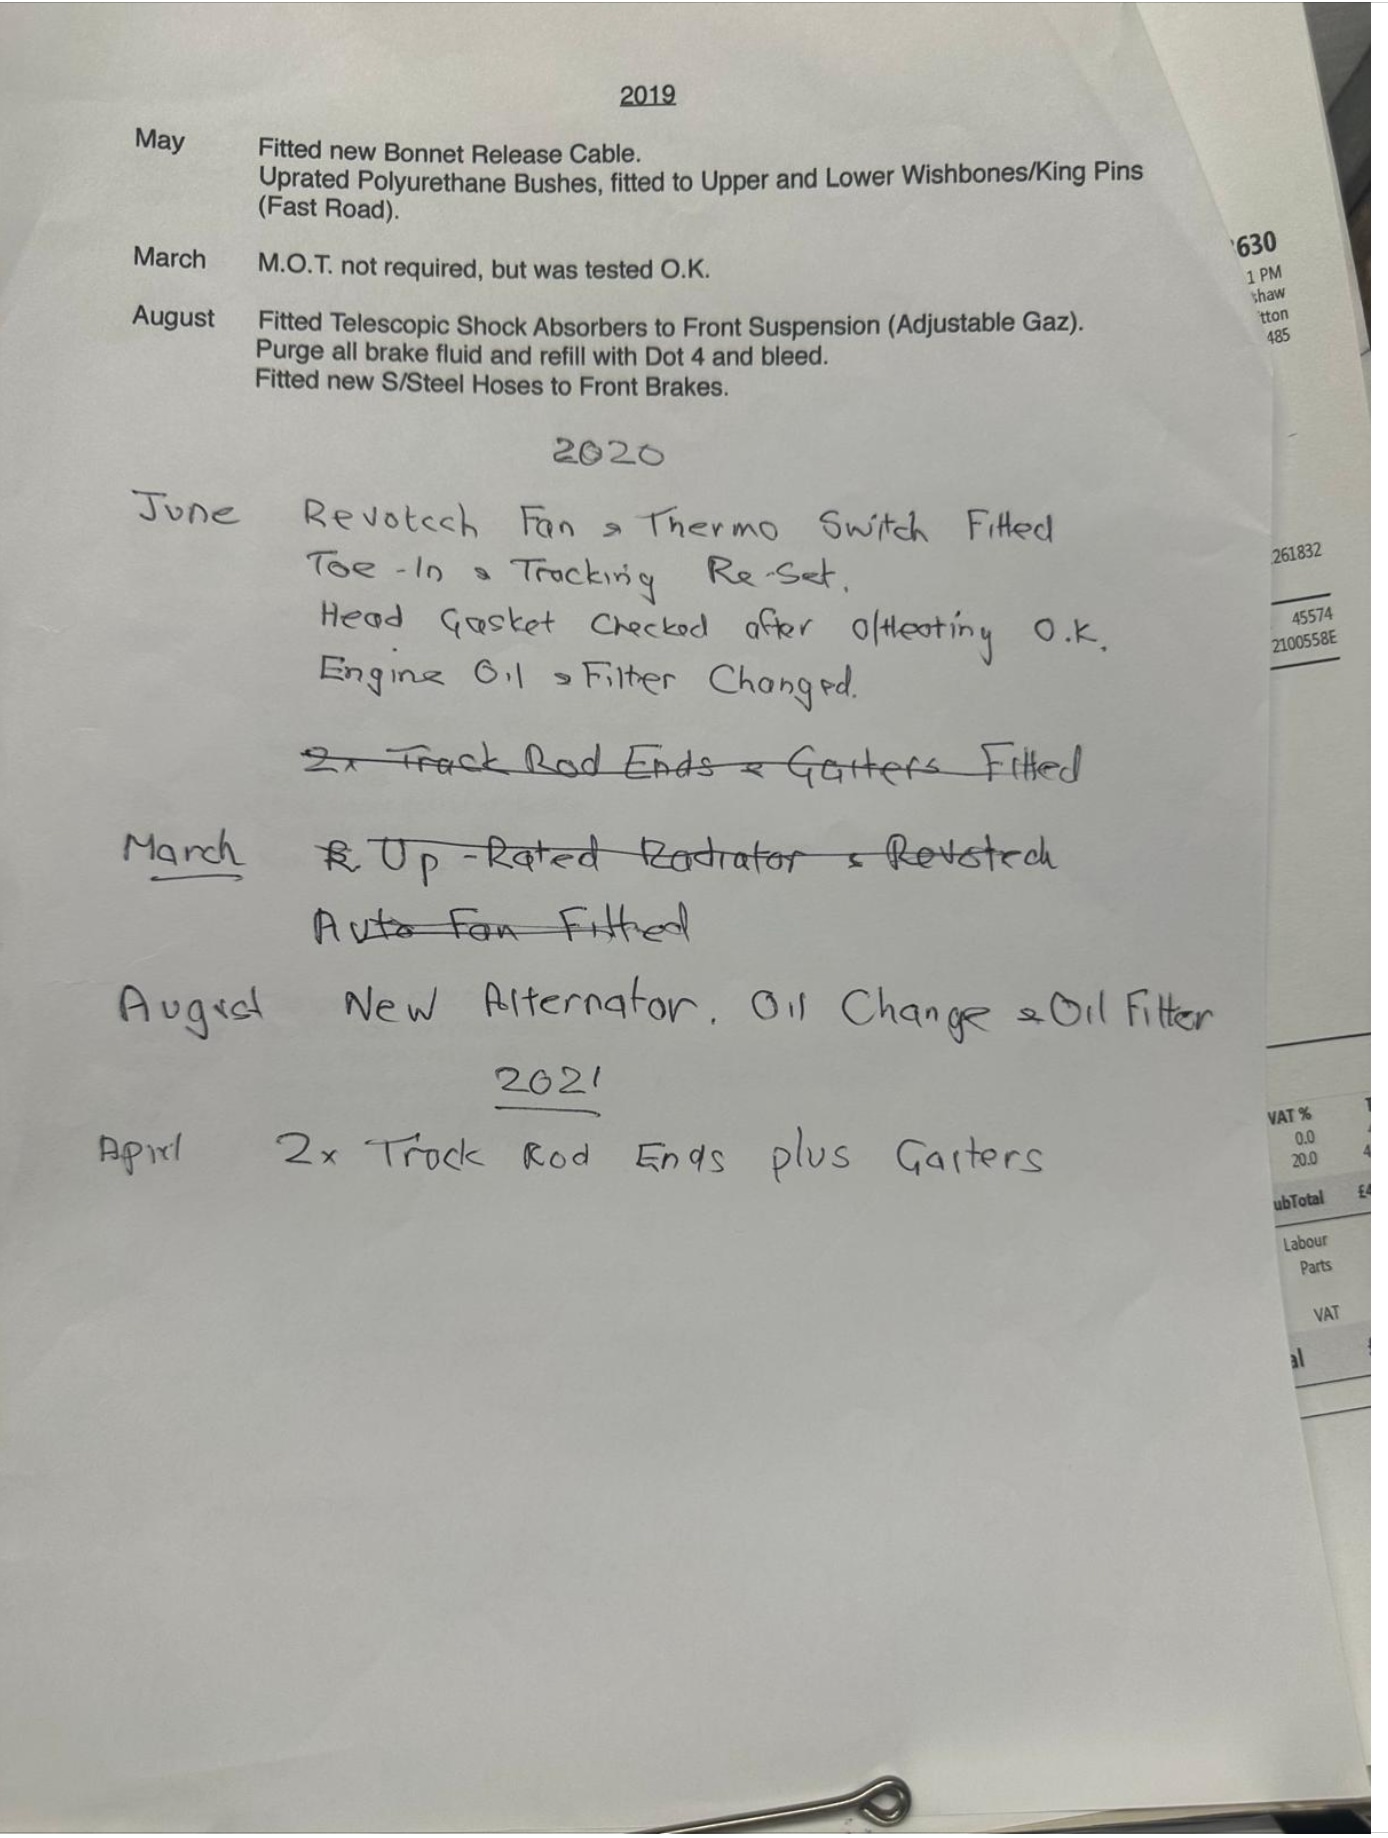 2019
May Fitted new Bonnet Release Cable.
Uprated Polyurethane Bushes, fitted to Upper and Lower Wishbones/King Pins
(Fast Road).
March M.O.T. not required, but was tested O.K.
August Fitted Telescopic Shock Absorbers to Front Suspension (Adjustable Gaz).
Purge all brake fluid and refill with Dot 4 and bleed.
Fitted new S/Steel Hoses to Front Brakes.
2020
June Revotech Fan & Thermo Switch Fitted
Toe-In & Tracking Re-Set.
Head Gasket Checked after O/Heating O.K.
Engine Oil & Filter Changed.
2x Track Rod Ends & Gaiters Fitted
March Up-Rated Radiator & Revotech
Auto Fan Fitted
August New Alternator. Oil Change & Oil Filter
2021
April 2x Track Rod Ends plus Gaiters
630
1 PM
shaw
tton
485
261832
45574
2100558E
VAT %
0.0
20.0
ubTotal £4
Labour
Parts
VAT
al